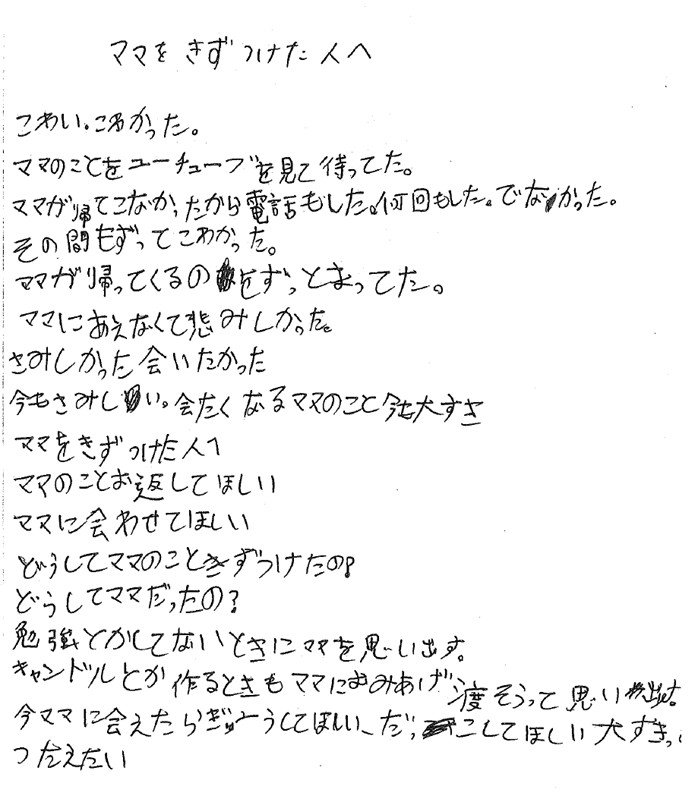 ママをきずつけた人へ
こわい。こわかった。
ママのことをユーチューブを見て待ってた。
ママが帰てこなかったから電話もした。何回もした。でなかった。
その間もずってこわかった。
ママが帰ってくるのをずっとまってた。
ママにあえなくて悲みしかった。
さみしかった会いたかった
今もさみしい。会たくなるママのこと今も大すき
ママをきずつけた人へ
ママのことお返してほしい
ママに会わせてほしい
どうしてママのこときずつけたの?
どうしてママだったの?
勉強とかしてないときにママを思い出す。
キャンドルとか作るときもママにおみあげ渡そうって思い出せた。
今ママに会えたらぎゅーうしてほしい、だっこしてほしい大すきっ
つたえたい